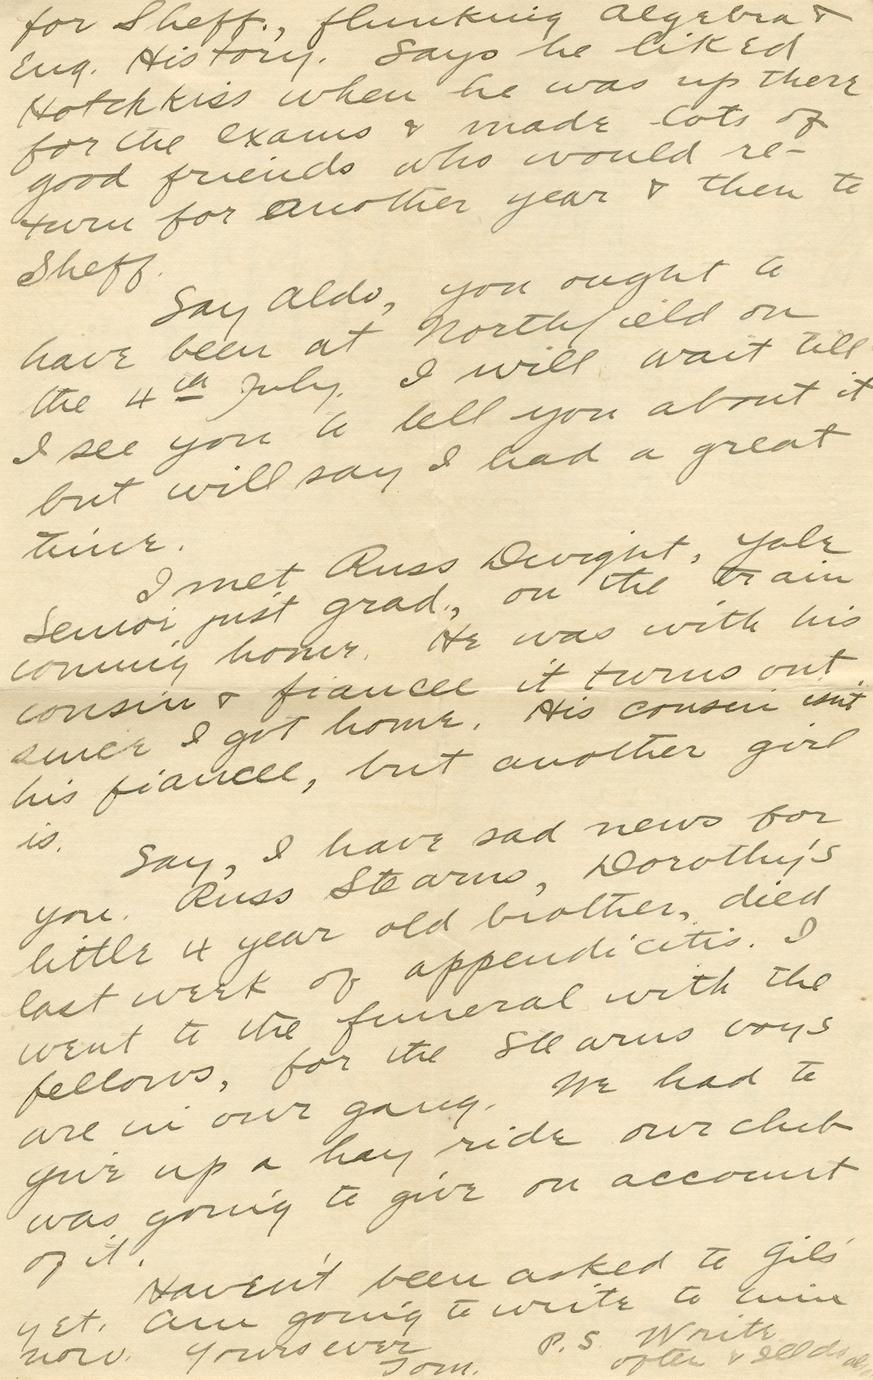 for Sheff., flunking Algebra &
Eng. History. Says he liked
Hotchkiss when he was up there
for the exams & made lots of
good friends who would re-
turn for another year & then to
Sheff.
Say Aldo, you ought to
have been at Northfield on
the 4th July. I will wait till
I see you to tell you about it
but will say I had a great
time.
I met Russ Dwight, Yale
Senior just grad., on the train
coming home. He was with his
cousin & fiancee it turns out
since I got home. His cousin isn't
his fiancee, but another girl
is.
Say, I have sad news for
you. Russ Stearns, Dorothy's
little 4 year old brother, died
last week of appendicitis. I
went to the funeral with the
fellows, for the Stearns boys
are in our gang. We had to
give up a hay ride our club
was going to give on account
of it.
Haven't been asked to Gil's
yet. Am going to write to him
now. Yours ever
Tom.
P.S. Write
often & I'll do